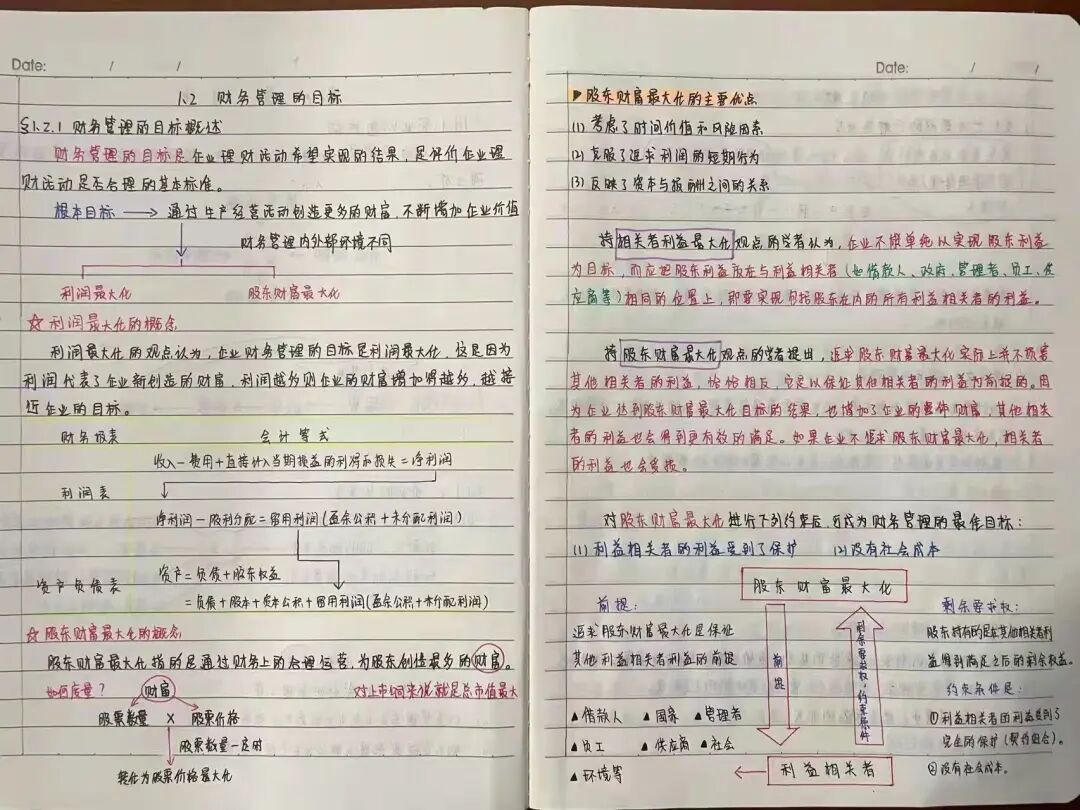 Date: / /
1.2 财务管理的目标
§1.2.1 财务管理的目标概述
财务管理的目标是企业理财活动希望实现的结果，是评价企业理
财活动是否合理的基本标准。
根本目标 → 通过生产经营活动创造更多的财富，不断增加企业价值
财务管理内外部环境不同
利润最大化 股东财富最大化
☆ 利润最大化的概念
利润最大化的观点认为，企业财务管理的目标是利润最大化，这是因为
利润代表了企业新创造的财富，利润越多则企业的财富增加得越多，越接
近企业的目标。
财务报表 会计等式
收入－费用＋直接计入当期损益的利得和损失＝净利润
利润表
净利润－股利分配＝留用利润(盈余公积＋未分配利润)
资产＝负债＋股东权益
资产负债表
＝负债＋股本＋资本公积＋留用利润(盈余公积＋未分配利润)
☆ 股东财富最大化的概念
股东财富最大化指的是通过财务上的合理运营，为股东创造最多的财富。
如何度量？ 财富 对上市公司来说就是总市值最大
股票数量 × 股票价格
股票数量一定时
转化为股票价格最大化
Date: / /
▶股东财富最大化的主要优点
(1) 考虑了时间价值和风险因素
(2) 克服了追求利润的短期行为
(3) 反映了资本与报酬之间的关系
持相关者利益最大化观点的学者认为，企业不能单纯以实现股东利益
为目标，而应把股东利益放在与利益相关者(如借款人、政府、管理者、员工、供
应商等)相同的位置上，即要实现包括股东在内的所有利益相关者的利益。
持股东财富最大化观点的学者提出，追求股东财富最大化实际上并不损害
其他相关者的利益，恰恰相反，它是以保证其他相关者的利益为前提的。因
为企业达到股东财富最大化目标的结果，也增加了企业的整体财富，其他相关
者的利益也会得到更有效的满足。如果企业不追求股东财富最大化，相关者
的利益也会受损。
对股东财富最大化进行下列约束后，可成为财务管理的最佳目标：
(1) 利益相关者的利益受到了保护 (2) 没有社会成本
股东财富最大化
前提：
追求股东财富最大化是保证
其他利益相关者利益的前提
▲借款人 ▲国家 ▲管理者
▲员工 ▲供应商 ▲社会
▲环境等
前提
剩余要求权，约束条件
利益相关者
剩余要求权：
股东持有的是在其他相关者利
益得到满足之后的剩余权益。
约束条件是：
①利益相关者的利益受到了
完全的保护(契约组合)。
②没有社会成本。